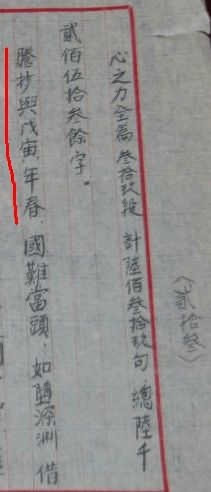 〈貳拾叁〉
心之力全篇叁拾玖段 計陸佰叁拾玖句 總陸千
貳佰伍拾叁餘字。
謄抄與戊寅年春，國難當頭，如墮深淵 借